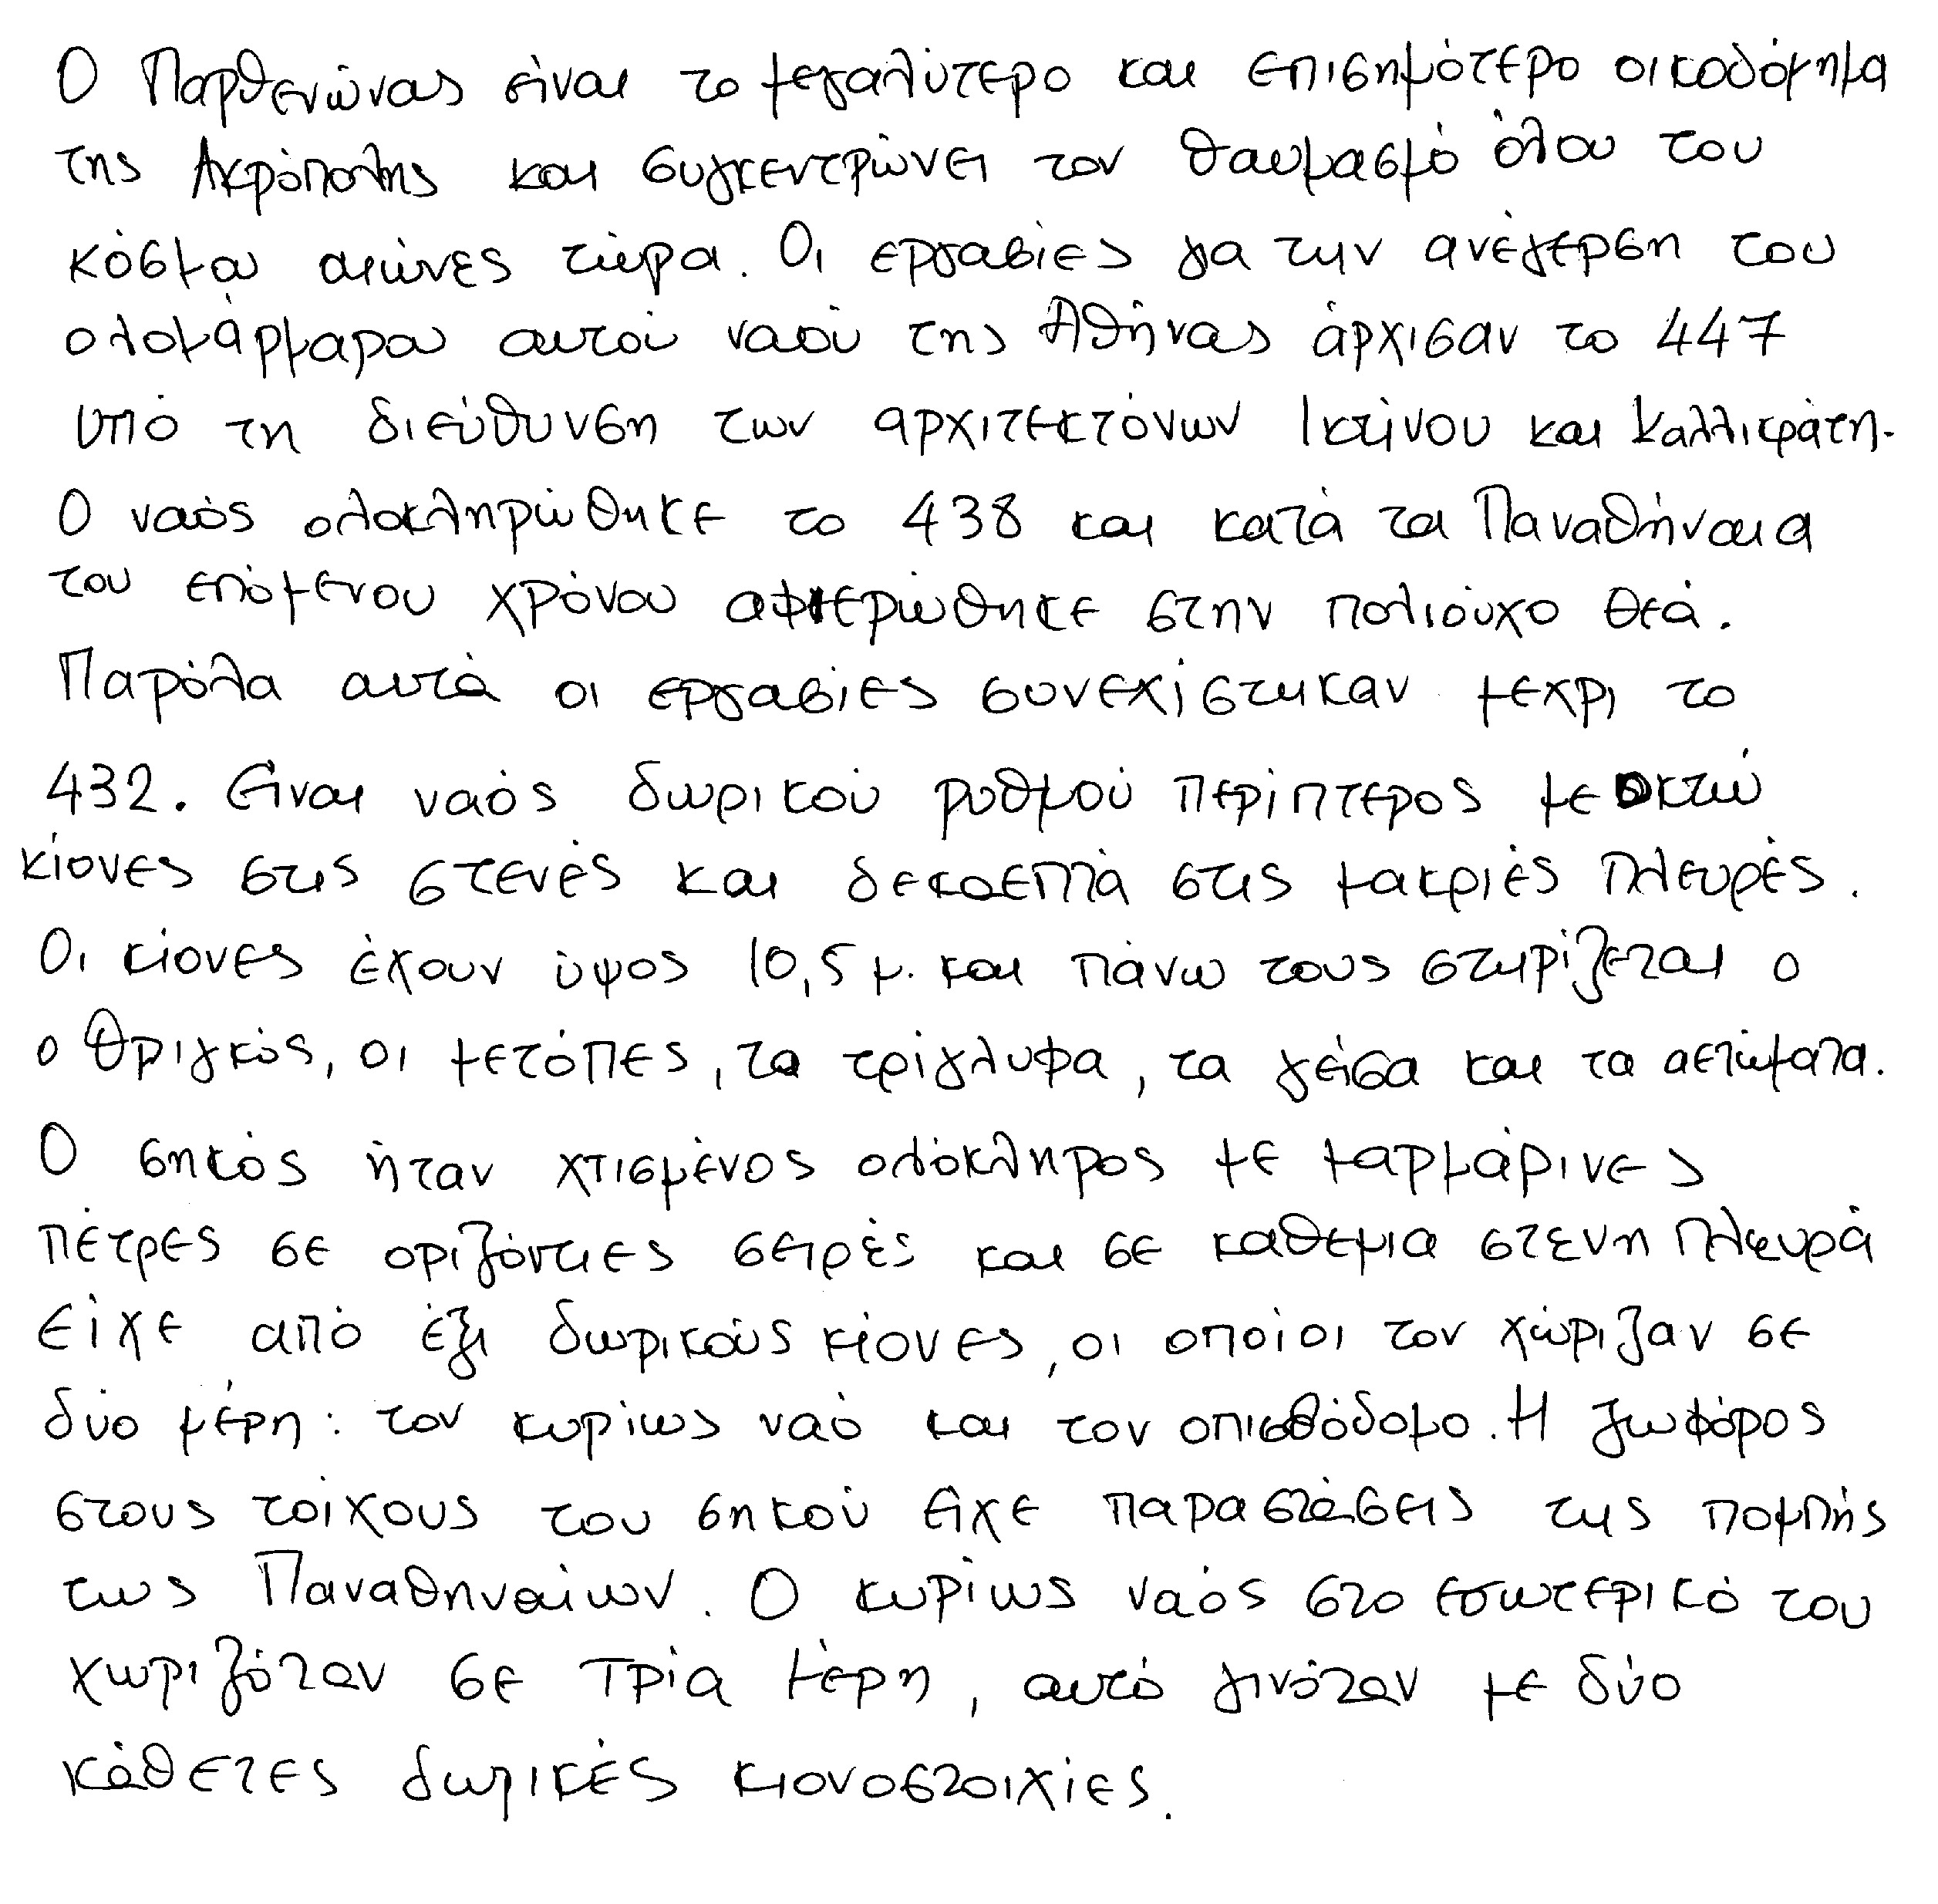 Ο Παρθενώνας είναι το μεγαλύτερο και επισημότερο οικοδόμημα
της Ακρόπολης και συγκεντρώνει τον θαυμασμό όλου του
κόσμου αιώνες τώρα. Οι εργασίες για την ανέγερση του
ολομάρμαρου αυτού ναού της Αθήνας άρχισαν το 447
υπό τη διεύθυνση των αρχιτεκτόνων Ικτίνου και Καλλικράτη.
Ο ναός ολοκληρώθηκε το 438 και κατά τα Παναθήναια
του επόμενου χρόνου αφιερώθηκε στην πολιούχο θεά.
Παρόλα αυτά οι εργασίες συνεχίστηκαν μεχρι το
432. Είναι ναός δωρικού ρυθμού περίπτερος με οκτώ
κίονες στις στενές και δεκαεπτά στις μακριές πλευρές.
Οι κίονες έχουν ύψος 10,5 μ. και πάνω τους στηρίζεται ο
ο θριγκός, οι μετόπες, τα τρίγλυφα, τα γείσα και τα αετώματα.
Ο σηκός ήταν χτισμένος ολόκληρος με μαρμάρινες
πέτρες σε οριζόντιες σειρές και σε καθεμια στενη πλευρά
είχε από έξι δωρικούς κίονες, οι οποίοι τον χώριζαν σε
δύο μέρη: τον κυρίως ναό και τον οπισθόδομο. Η ζωφόρος
στους τοίχους του σηκού είχε παραστάσεις της πομπής
τως Παναθηναίων. Ο κυρίως ναός στο εσωτερικό του
χωριζόταν σε τρία μέρη, αυτό γινόταν με δύο
κάθετες δωρικές κιονοστοιχίες.